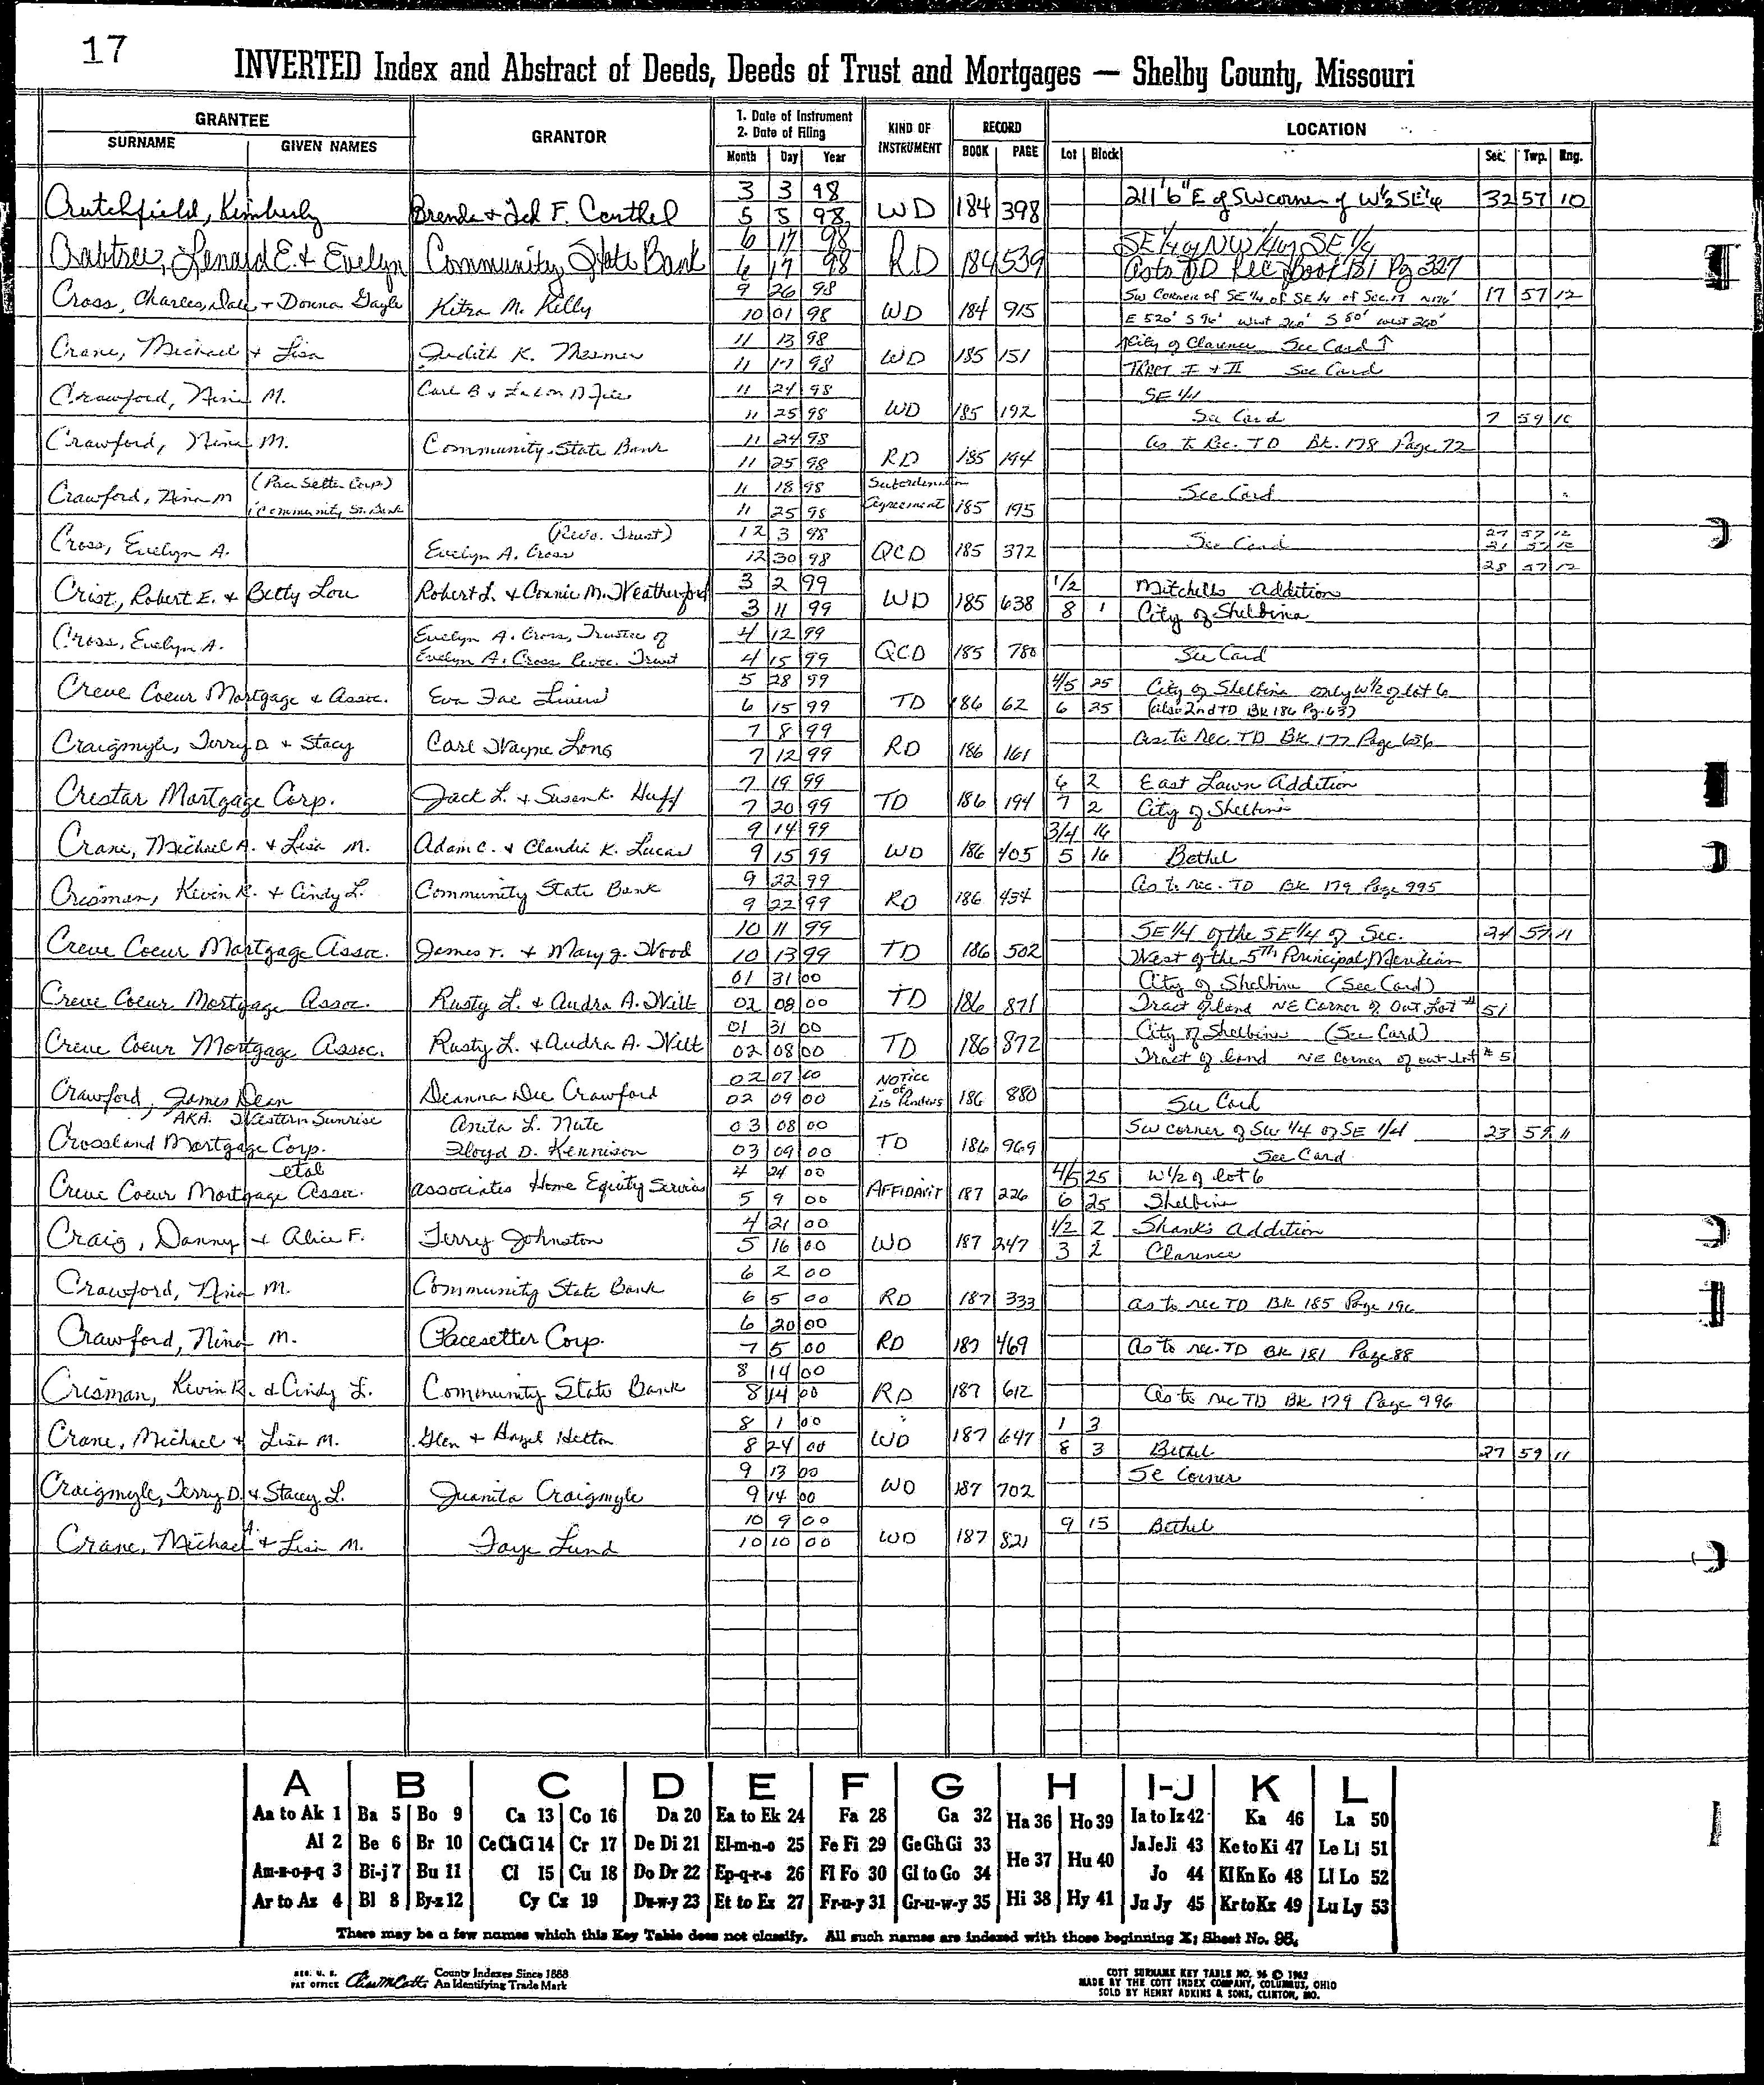 17
INVERTED Index and Abstract of Deeds, Deeds of Trust and Mortgages — Shelby County, Missouri
GRANTEE GRANTOR 1. Date of Instrument 2. Date of Filing KIND OF INSTRUMENT RECORD LOCATION
SURNAME GIVEN NAMES Month Day Year BOOK PAGE Lot Block Sec. Twp. Rng.
3 3 98 211'6" E of SW corner of W½ SE¼ 32 57 10
Crutchfield, Kimberly Brenda & Ted F. Carthel 5 5 98 WD 184 398
6 17 98 SE ¼ of NW ¼ of SE ¼
Crabtree, Lenard E. & Evelyn Community State Bank 6 17 98 RD 184 539 As to TD Rec Book 181 Pg 327
9 26 98 SW Corner of SE ¼ of SE ¼ of Sec. 17 17 57 12
Cross, Charles, Dale & Donna Gayle Kitra M. Kelly 10 01 98 WD 184 915 E 520' S 96' West 260' S 80' West 260'
11 13 98 City of Clarence See Card ↑
Crane, Michael & Lisa Judith K. 11 17 98 WD 185 151 TRACT I & II See Card
11 24 98 SE ¼
Crawford, Nina M. Carl B & 11 25 98 WD 185 192 See Card 7 59 10
11 24 98 As to Rec. TD Bk. 178 Page 72
Crawford, Nina M. Community State Bank 11 25 98 RD 185 194
(Pace Setter Corp) 11 18 98 Subordination
Crawford, Nina M Community St. Bank 11 25 98 Agreement 185 195 See Card
(Revo. Trust) 12 3 98 27 57 12
Cross, Evelyn A. Evelyn A. Cross 12 30 98 QCD 185 372 See Card 21 57 12
28 57 12
3 2 99 1/2 Mitchells Addition
Crist, Robert E. & Betty Lou Robert L. & Connie M. Weatherford 3 11 99 WD 185 638 8 1 City of Shelbina
Evelyn A. Cross, Trustee of 4 12 99
Cross, Evelyn A. Evelyn A. Cross Revoc. Trust 4 15 99 QCD 185 780 See Card
5 28 99 4/5 25 City of Shelbina only W½ of lot 6
Creve Coeur Mortgage & Assoc. Eva Fae 6 15 99 TD 186 62 6 25 (also 2nd TD Bk 186 Pg. 63)
7 8 99 As to Rec. TD Bk 177 Page 656
Craigmyle, Terry D. & Stacy Carl Wayne Long 7 12 99 RD 186 161
7 19 99 6 2 East Lawn Addition
Crestar Mortgage Corp. Jack L. & Susan K. Huff 7 20 99 TD 186 194 7 2 City of Shelbina
9 14 99 3/4 16
Crane, Michael A. & Lisa M. Adam C. & Claudia K. Lucas 9 15 99 WD 186 405 5 16 Bethel
9 22 99 As to rec. TD Bk 179 Page 995
Crisman, Kevin R. & Cindy L. Community State Bank 9 22 99 RD 186 434
10 11 99 SE 1/4 of the SE 1/4 of Sec. 24 57 11
Creve Coeur Mortgage Assoc. James T. & Mary J. Wood 10 13 99 TD 186 502 West of the 5th Principal Meridian
01 31 00 City of Shelbina (See Card)
Creve Coeur Mortgage Assoc. Rusty L. & Audra A. Wilt 02 08 00 TD 186 871 Tract of land NE Corner of Out Lot # 51
01 31 00 City of Shelbina (See Card)
Creve Coeur Mortgage Assoc. Rusty L. & Audra A. Wilt 02 08 00 TD 186 872 Tract of land NE Corner of out Lot # 51
02 07 00 NOTICE of
Crawford, James Dean Deanna Dee Crawford 02 09 00 Lis Pendens 186 880 See Card
AKA. Western Sunrise Anita L. Nute 03 08 00 SW corner of SW 1/4 of SE 1/4 23 57 11
Crossland Mortgage Corp. Floyd D. Kennison 03 09 00 TD 186 969 See Card
etal 4 24 00 4/5 25 W 1/2 of lot 6
Creve Coeur Mortgage Assoc. Associates Home Equity Services 5 9 00 AFFIDAVIT 187 226 6 25 Shelbina
4 21 00 1/2 2 Shank's Addition
Craig, Danny & Alice F. Terry Johnston 5 16 00 WD 187 247 3 2 Clarence
6 2 00
Crawford, Nina M. Community State Bank 6 5 00 RD 187 333 As to rec TD Bk 185 Page 196
6 20 00
Crawford, Nina M. Pacesetter Corp. 7 5 00 RD 187 469 As to rec. TD Bk 181 Page 88
8 14 00
Crisman, Kevin R. & Cindy L. Community State Bank 8 14 00 RD 187 612 As to rec TD Bk 179 Page 996
8 1 00 1 3
Crane, Michael & Lisa M. Glen & Hazel Helton 8 24 00 WD 187 647 8 3 Bethel 27 59 11
9 13 00 SE Corner
Craigmyle, Terry D. & Stacey L. Juanita Craigmyle 9 14 00 WD 187 702
10 9 00 9 15 Bethel
Crane, Michael A. & Lisa M. Faye Lund 10 10 00 WD 187 821
A B C D E F G H I-J K L
Aa to Ak 1 Ba 5 Bo 9 Ca 13 Co 16 Da 20 Ea to Ek 24 Fa 28 Ga 32 Ha 36 Ho 39 Ia to Iz 42 Ka 46 La 50
Al 2 Be 6 Br 10 Ce Ch Ci 14 Cr 17 De Di 21 El-m-n-o 25 Fe Fi 29 Ge Gh Gi 33 He 37 Hu 40 Ja Je Ji 43 Ke to Ki 47 Le Li 51
Am-n-o-p-q 3 Bi-j 7 Bu 11 Cl 15 Cu 18 Do Dr 22 Ep-q-r-s 26 Fl Fo 30 Gl to Go 34 Jo 44 Kl Kn Ko 48 Ll Lo 52
Ar to Az 4 Bl 8 By-z 12 Cy Cz 19 Du-w-y 23 Et to Ez 27 Fr-u-y 31 Gr-u-w-y 35 Hi 38 Hy 41 Ju Jy 45 Kr to Kz 49 Lu Ly 53
There may be a few names which this Key Table does not classify. All such names are indexed with those beginning X; Sheet No. 95.
REG. U. S. PAT OFFICE County Indexes Since 1888 An Identifying Trade Mark
COTT SURNAME KEY TABLE NO. 96 © 1962
MADE BY THE COTT INDEX COMPANY, COLUMBUS, OHIO
SOLD BY HENRY ADKINS & SONS, CLINTON, MO.